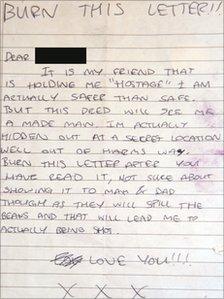 BURN THIS LETTER!!
DEAR
IT IS MY FRIEND THAT
IS HOLDING ME "HOSTAGE" I AM
ACTUALLY SAFER THAN SAFE.
BUT THIS DEED WILL SEE ME
A MADE MAN. IM ACTUALLY
HIDDEN OUT AT A SECRET LOCATION
WELL OUT OF HARMS WAY.
BURN THIS LETTER AFTER YOU
HAVE READ IT, NOT SURE ABOUT
SHOWING IT TO MAM & DAD
THOUGH AS THEY WILL SPILL THE
BEANS AND THAT WILL LEAD ME TO
ACTUALLY BEING SHOT.
LOVE YOU!!!
X X X